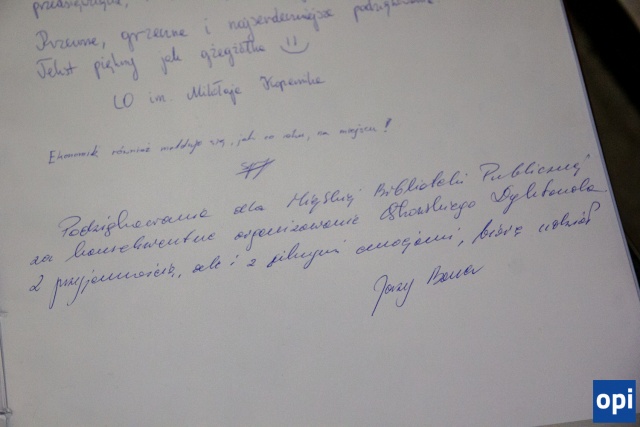 przedsięwzięcie,
Przemiłe, grzeczne i najserdeczniejsze podziękowania.
Tekst piękny jak gżegżółka
LO im. Mikołaja Kopernika
Ekonomik również melduje się, jak co roku, na miejscu!
Podziękowania dla Miejskiej Biblioteki Publicznej
za konsekwentne organizowanie Dyktanda
Z przyjemnością, ale i z silnymi emocjami, biorę udział
Jerzy
opi